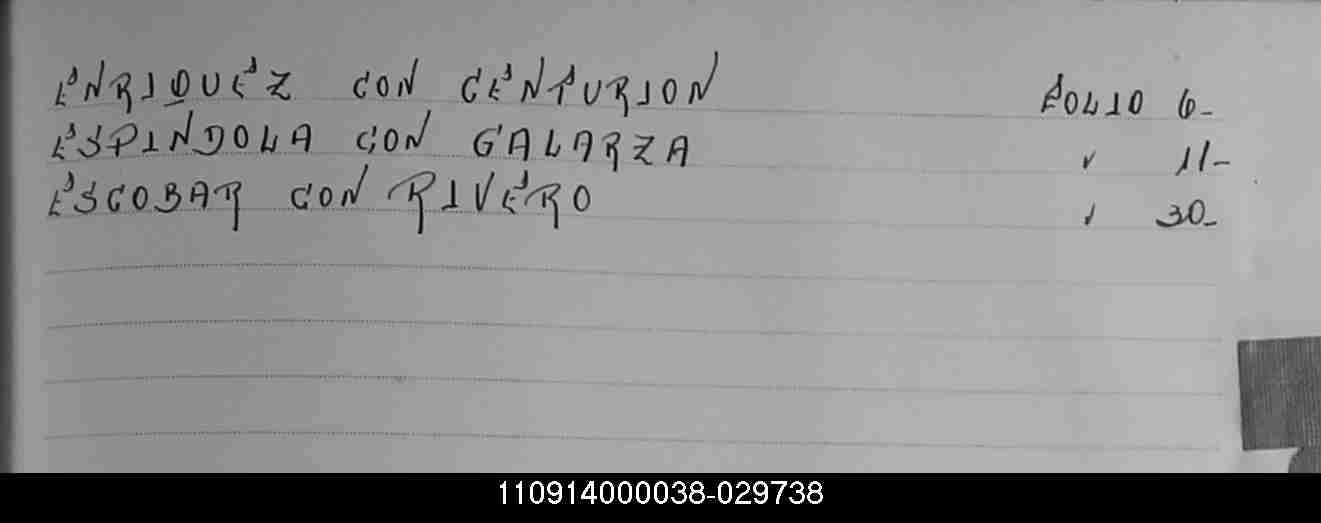 ENRIQUEZ CON CENTURION FOLIO 6-
ESPINDOLA CON GALARZA " 11-
ESCOBAR CON RIVERO " 30-
110914000038-029738